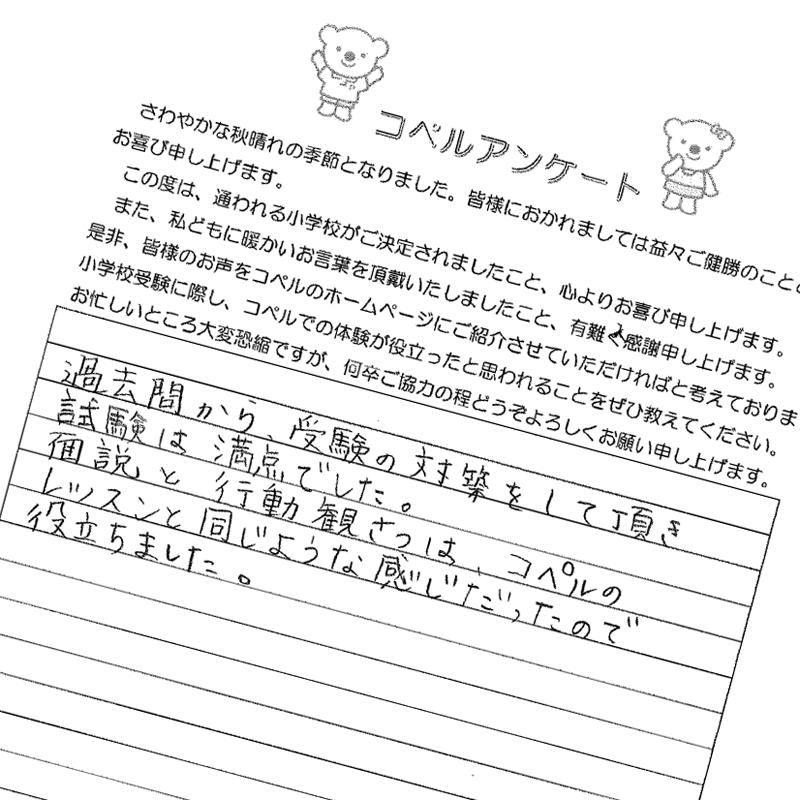 コペルアンケート
さわやかな秋晴れの季節となりました。皆様におかれましては益々ご健勝のことと
お喜び申し上げます。
この度は、通われる小学校がご決定されましたこと、心よりお喜び申し上げます。
また、私どもに暖かいお言葉を頂戴いたしましたこと、有難く感謝申し上げます。
是非、皆様のお声をコペルのホームページにご紹介させていただければと考えておりま
小学校受験に際し、コペルでの体験が役立ったと思われることをぜひ教えてください。
お忙しいところ大変恐縮ですが、何卒ご協力の程どうぞよろしくお願い申し上げます。
過去問から、受験の対策をして頂き
試験は満点でした。
個説と行動観さつは、コペルの
レッスンと同じような感じだったので
役立ちました。